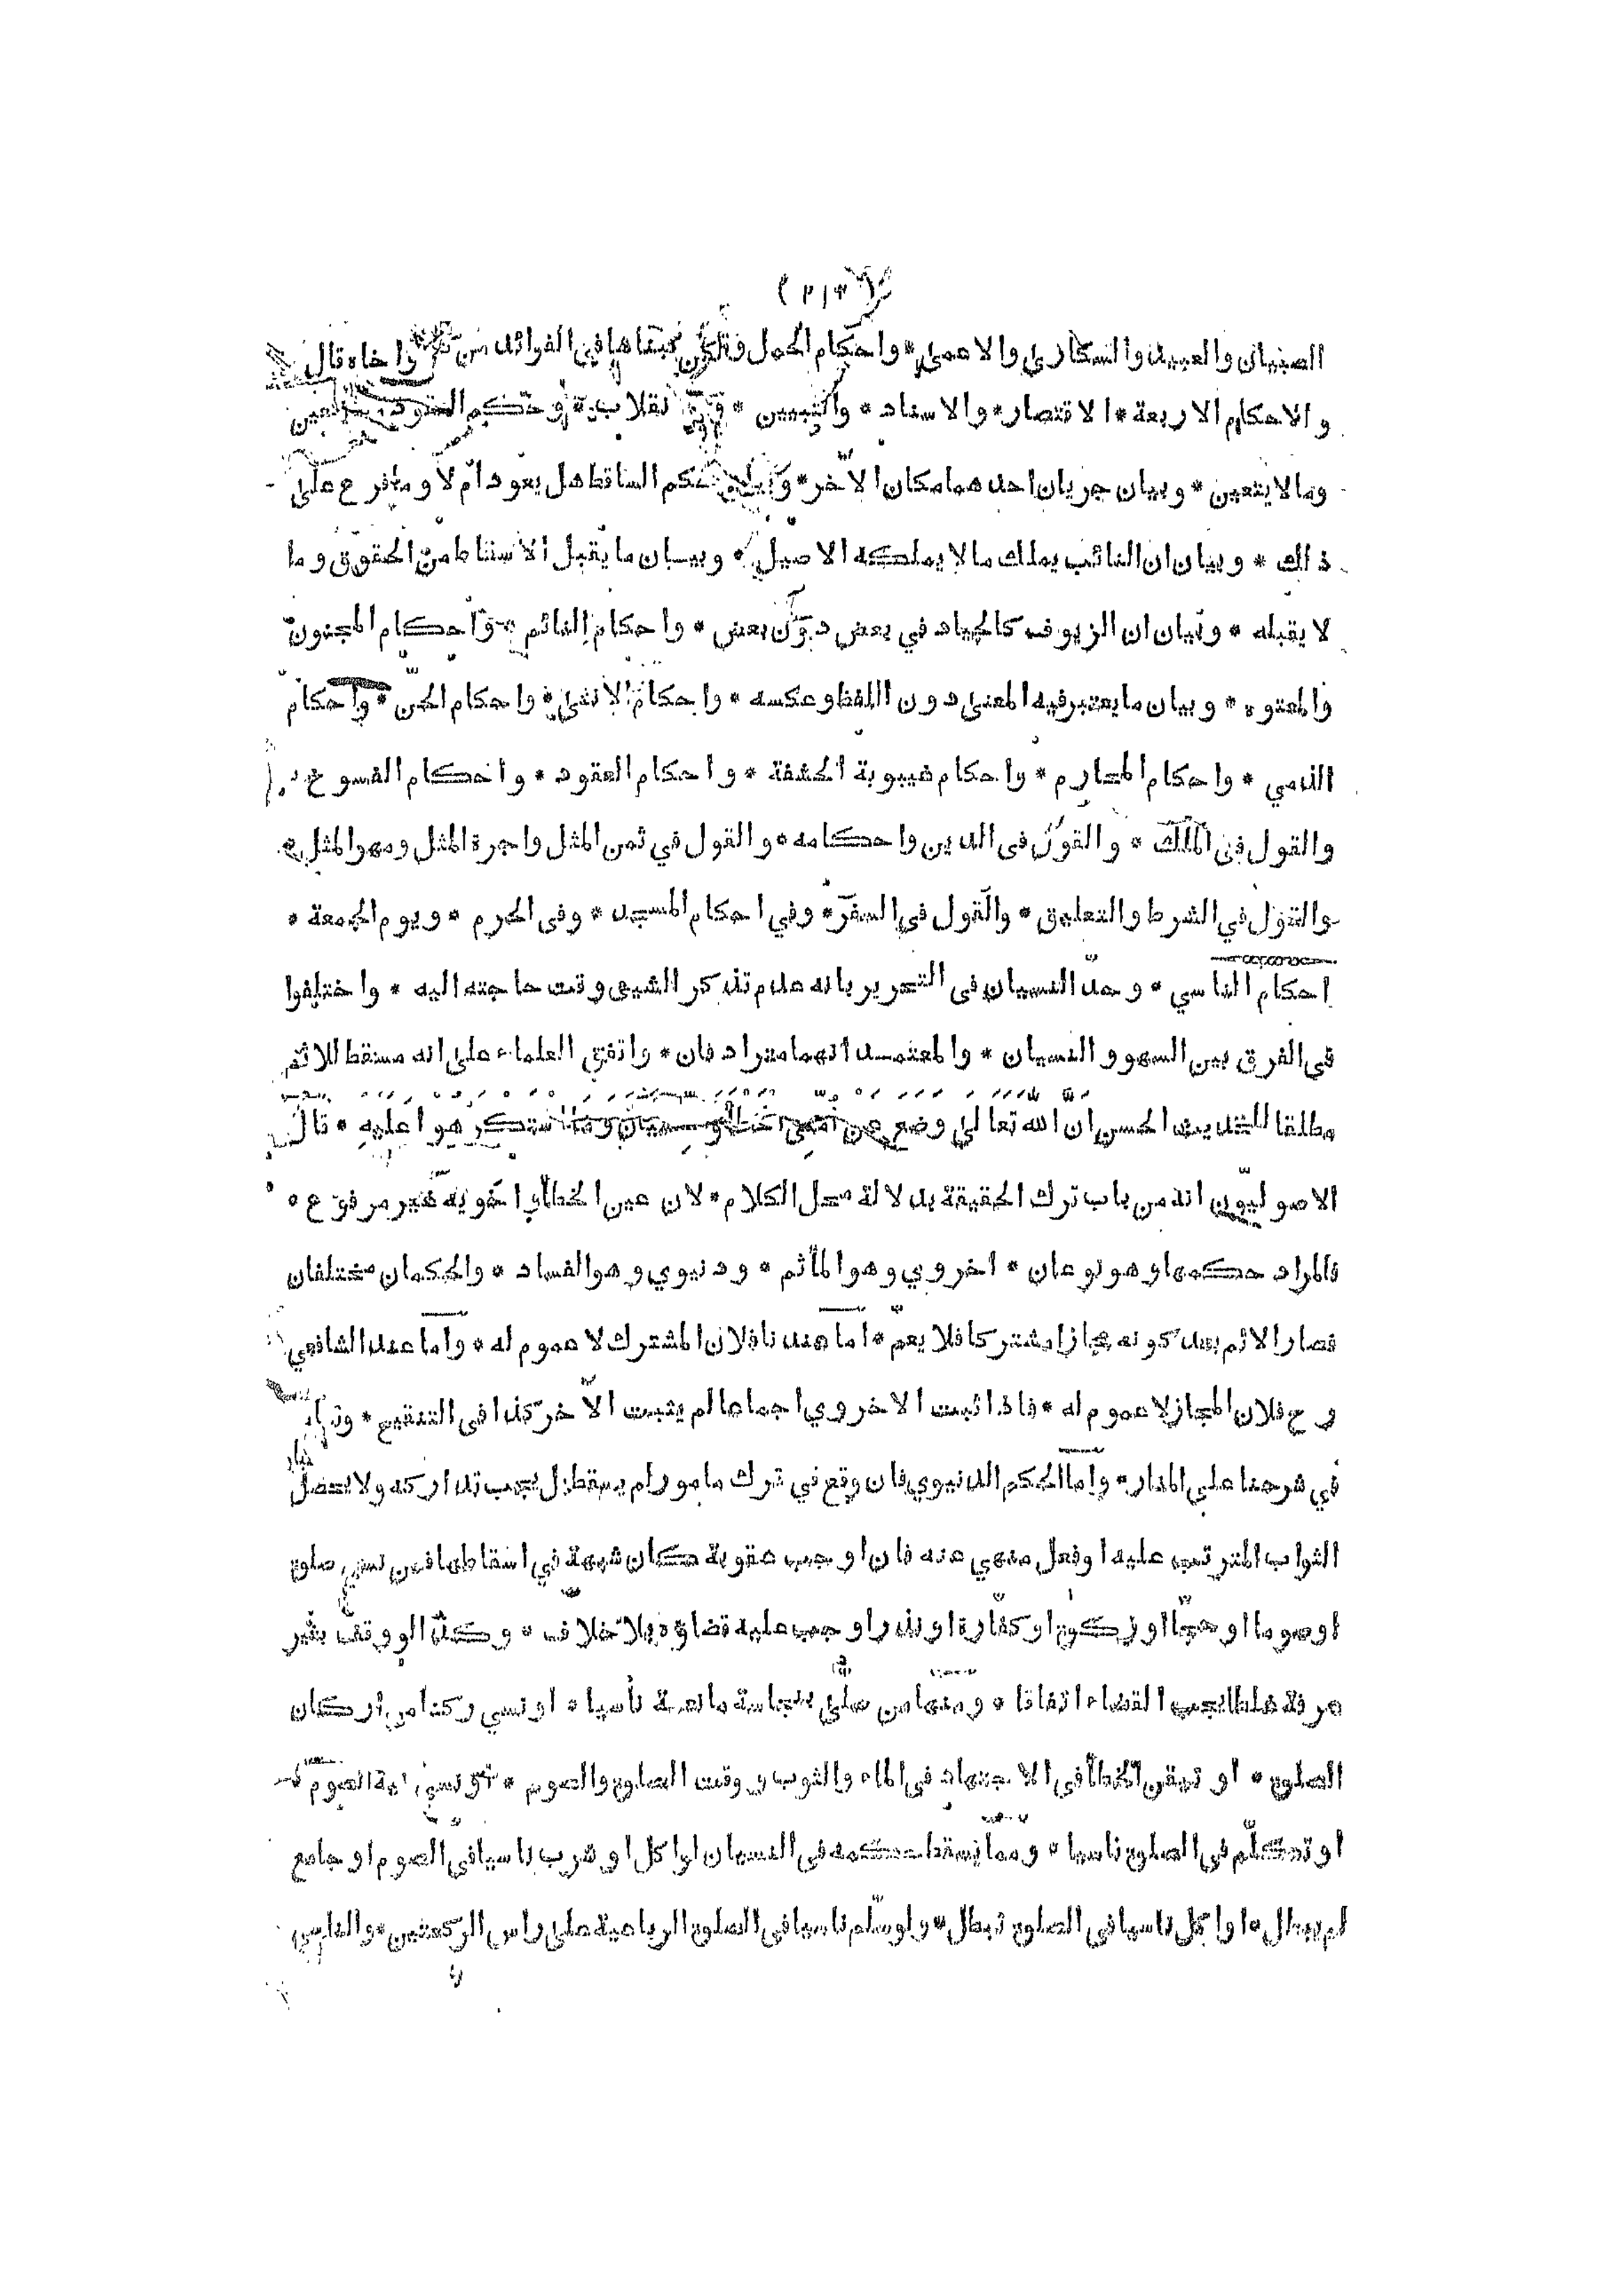 الصبيان والعبيد والسكارى والاعمى * واحكام الحمل وقد كتبناها في الفوائد من واخاه قال
والاحكام الاربعة * الاقتصار * والاستناد * والتبيين * والانقلاب * وحكم النقود وما يتعين
وما لا يتعين * وبيان جريان احدهما مكان الآخر * وبيان حكم الساقط هل يعود ام لا وما فرع على
ذلك * وبيان ان النائب يملك ما لا يملكه الاصيل * وبيان ما يقبل الاسقاط من الحقوق وما
لا يقبله * وبيان ان الزيوف كالجياد في بعض دون بعض * واحكام النائم * واحكام المجنون
والمعتوه * وبيان ما يعتبر فيه المعنى دون اللفظ وعكسه * واحكام الانثى * واحكام الجن * واحكام
الذمي * واحكام المحارم * واحكام غيبوبة الحشفة * واحكام العقود * واحكام الفسوخ *
والقول في الملك * والقول في الدين واحكامه * والقول في ثمن المثل واجرة المثل ومهر المثل *
والقول في الشرط والتعليق * والقول في السفر * وفي احكام المسجد * وفي الحرم * ويوم الجمعة *
احكام الناسي * وحدّ النسيان في التحرير بانه عدم تذكر الشيء وقت حاجته اليه * واختلفوا
في الفرق بين السهو والنسيان * والمعتمد انهما مترادفان * واتفق العلماء على انه مسقط للاثم
مطلقا للحديث الحسن ان الله تعالى وضع عن امتي الخطأ والنسيان وما استكرهوا عليه * قال
الاصوليّون انه من باب ترك الحقيقة بدلالة محل الكلام * لان عين الخطأ واخويه غير مرفوع *
فالمراد حكمها وهو نوعان * اخروي وهو المأثم * ودنيوي وهو الفساد * والحكمان مختلفان
فصار الاثم بعد كونه مجازا مشتركا فلا يعمّ * اما عندنا فلان المشترك لا عموم له * واما عند الشافعي
رح فلان المجاز لا عموم له * فاذا ثبت الاخروي اجماعا لم يثبت الآخر كذا في التنقيح *
في شرحنا على المنار * واما الحكم الدنيوي فان وقع في ترك مامور لم يسقط بل يجب تداركه ولا يحصل
الثواب المترتب عليه او فعل منهي عنه فان اوجب عقوبة كان شبهة في اسقاطها فمن نسي صلوة
او صوما او حجّا او زكوة او كفّارة او نذرا وجب عليه قضاؤه بلا خلاف * وكذا لو وقف بغير
عرفة غلطا يجب القضاء اتفاقا * ومنها من صلّى بنجاسة مانعة ناسيا * او نسي ركنا من اركان
الصلوة * او تيقن الخطأ في الاجتهاد في الماء والثوب ووقت الصلوة والصوم * او نسي نية الصوم
او تكلّم في الصلوة ناسيا * وممّا يسقط حكمه في النسيان لو اكل او شرب ناسيا في الصوم او جامع
لم يبطل * او اكل ناسيا في الصلوة تبطل * ولو سلّم ناسيا في الصلوة الرباعية على راس الركعتين * والناسي